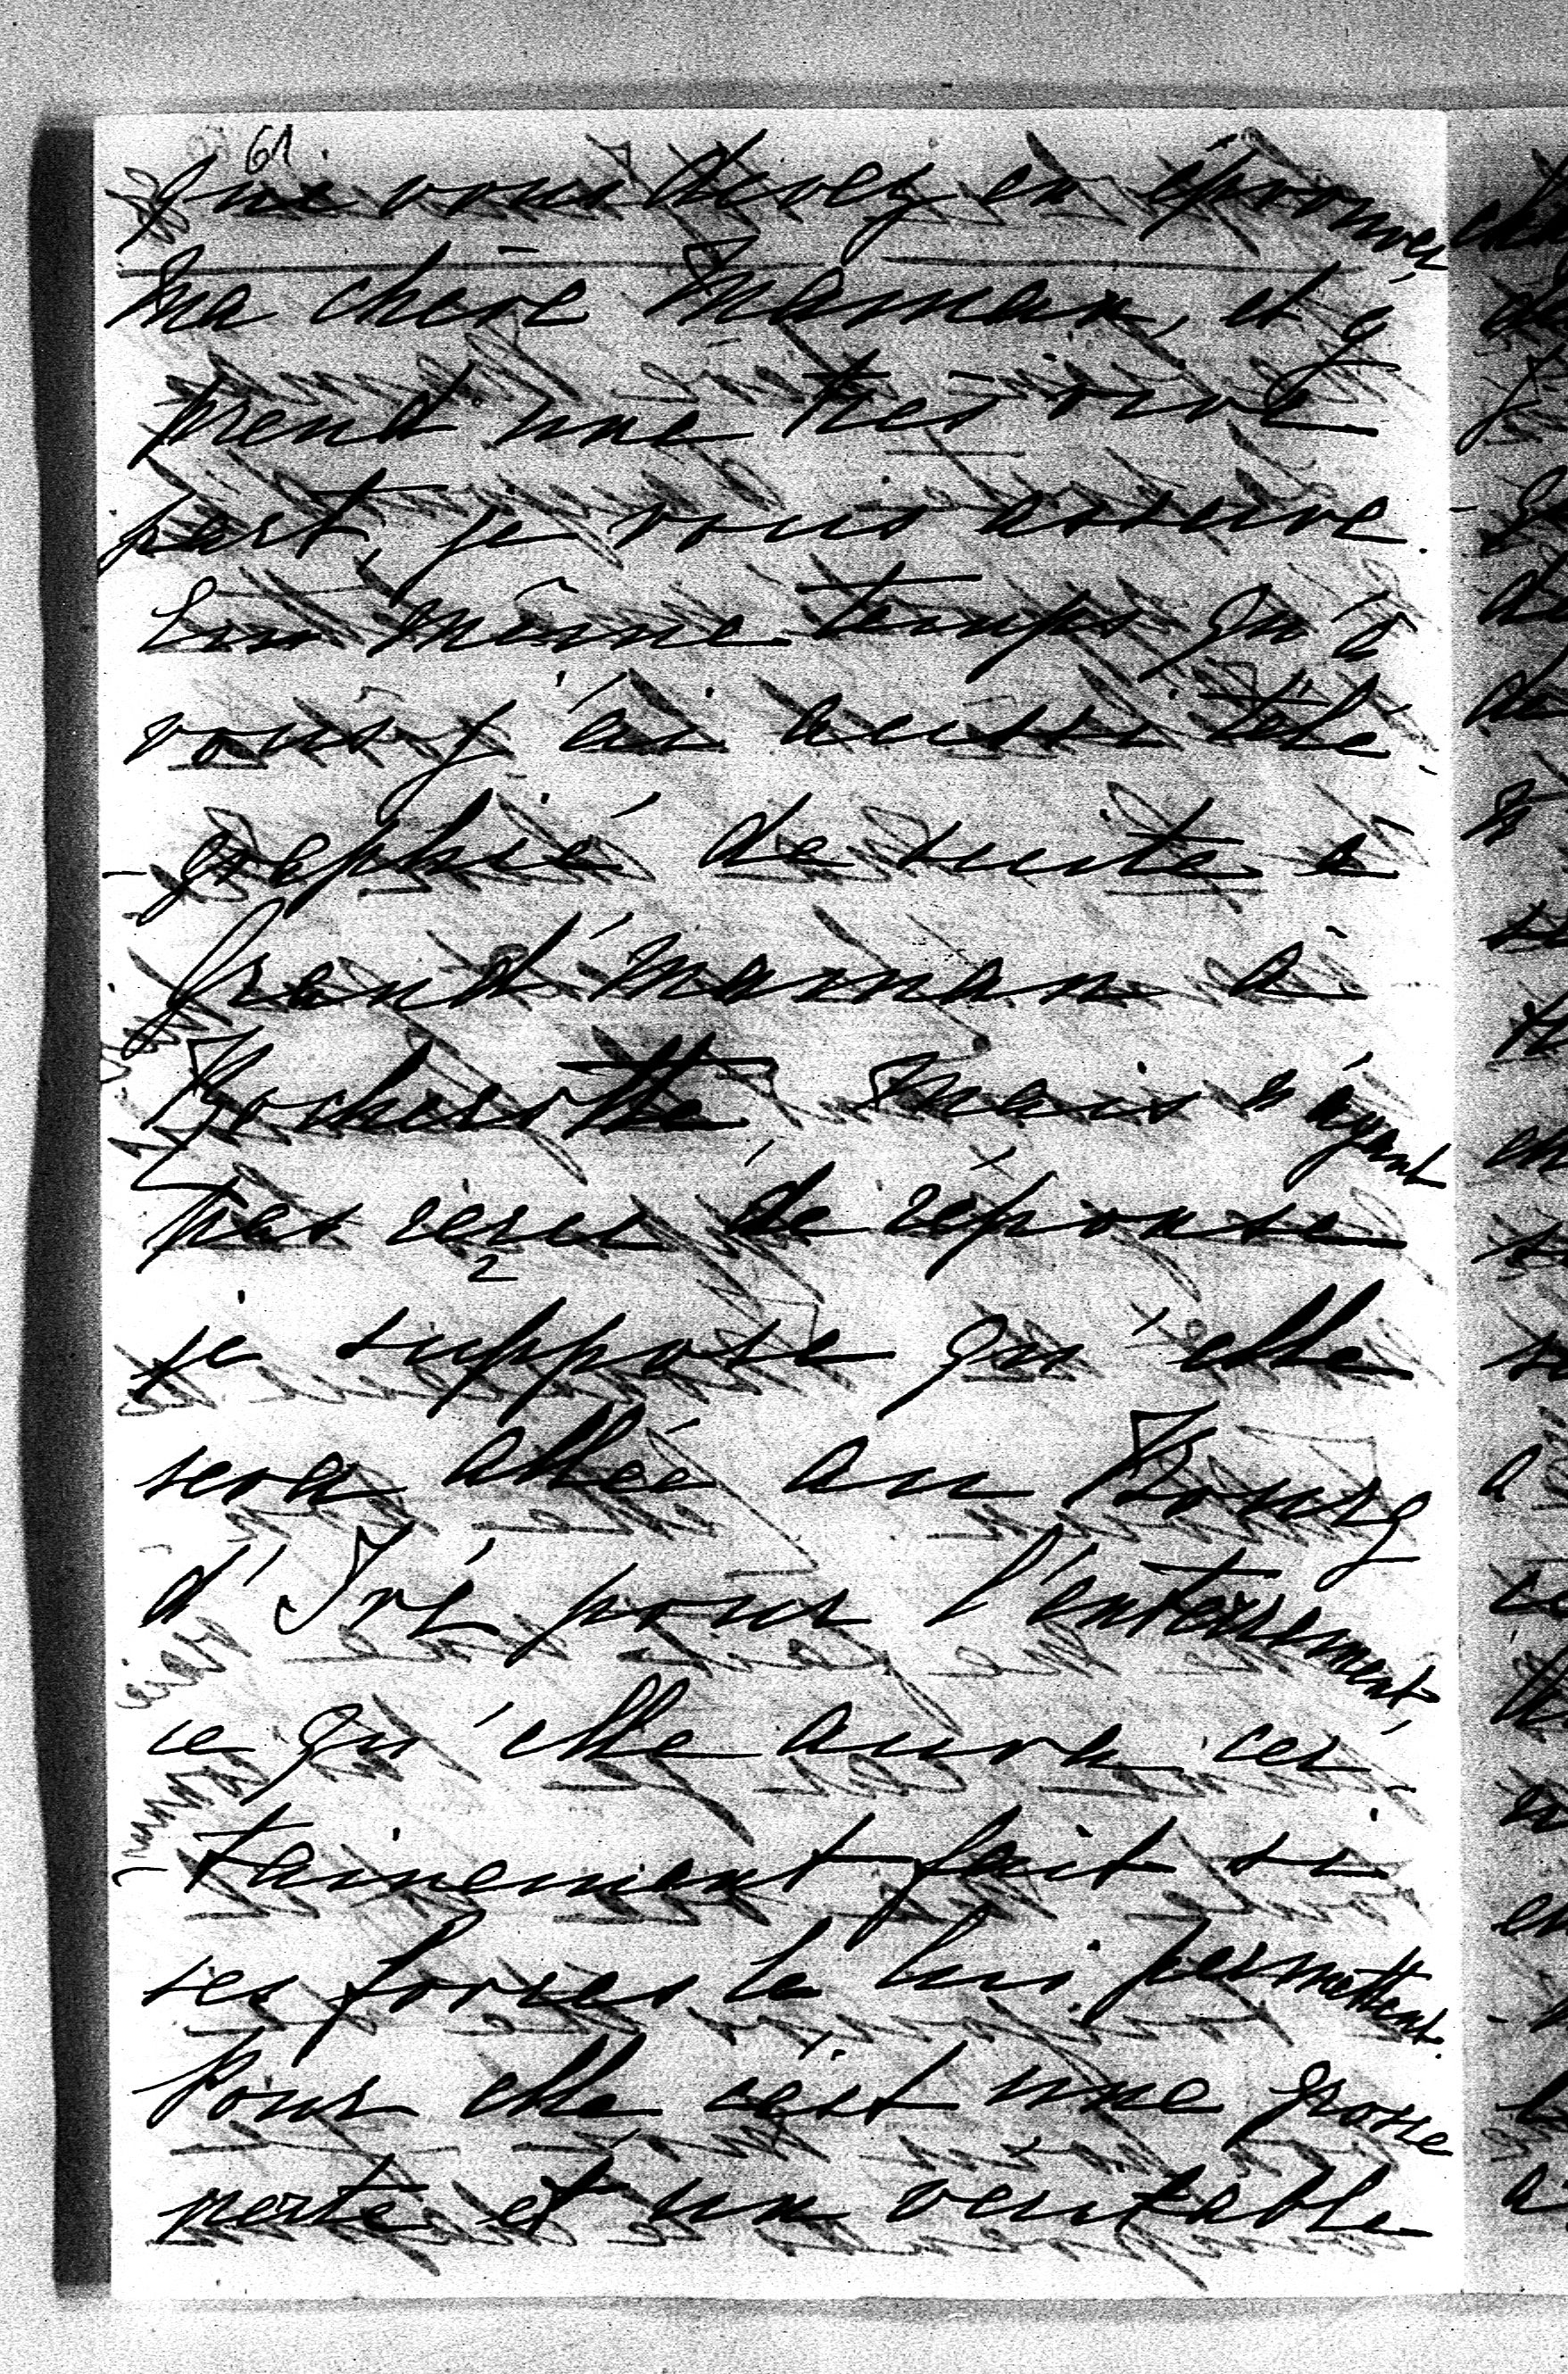 61.
que vous devez en éprouver
ma chère Maman, et y
prend une très vive
part, je vous assure.
En même temps qu'à
vous, j'ai aussi télé-
-graphié de suite à
Grand'maman à
Rocherotte, mais n'ayant
pas reçu de réponse
je suppose qu'elle
sera allée au Bourg
d'Iré pour l'enterrement,
ce qu'elle aura cer-
tainement fait si
ses forces le lui permettent.
Pour elle c'est une grosse
perte et un véritable